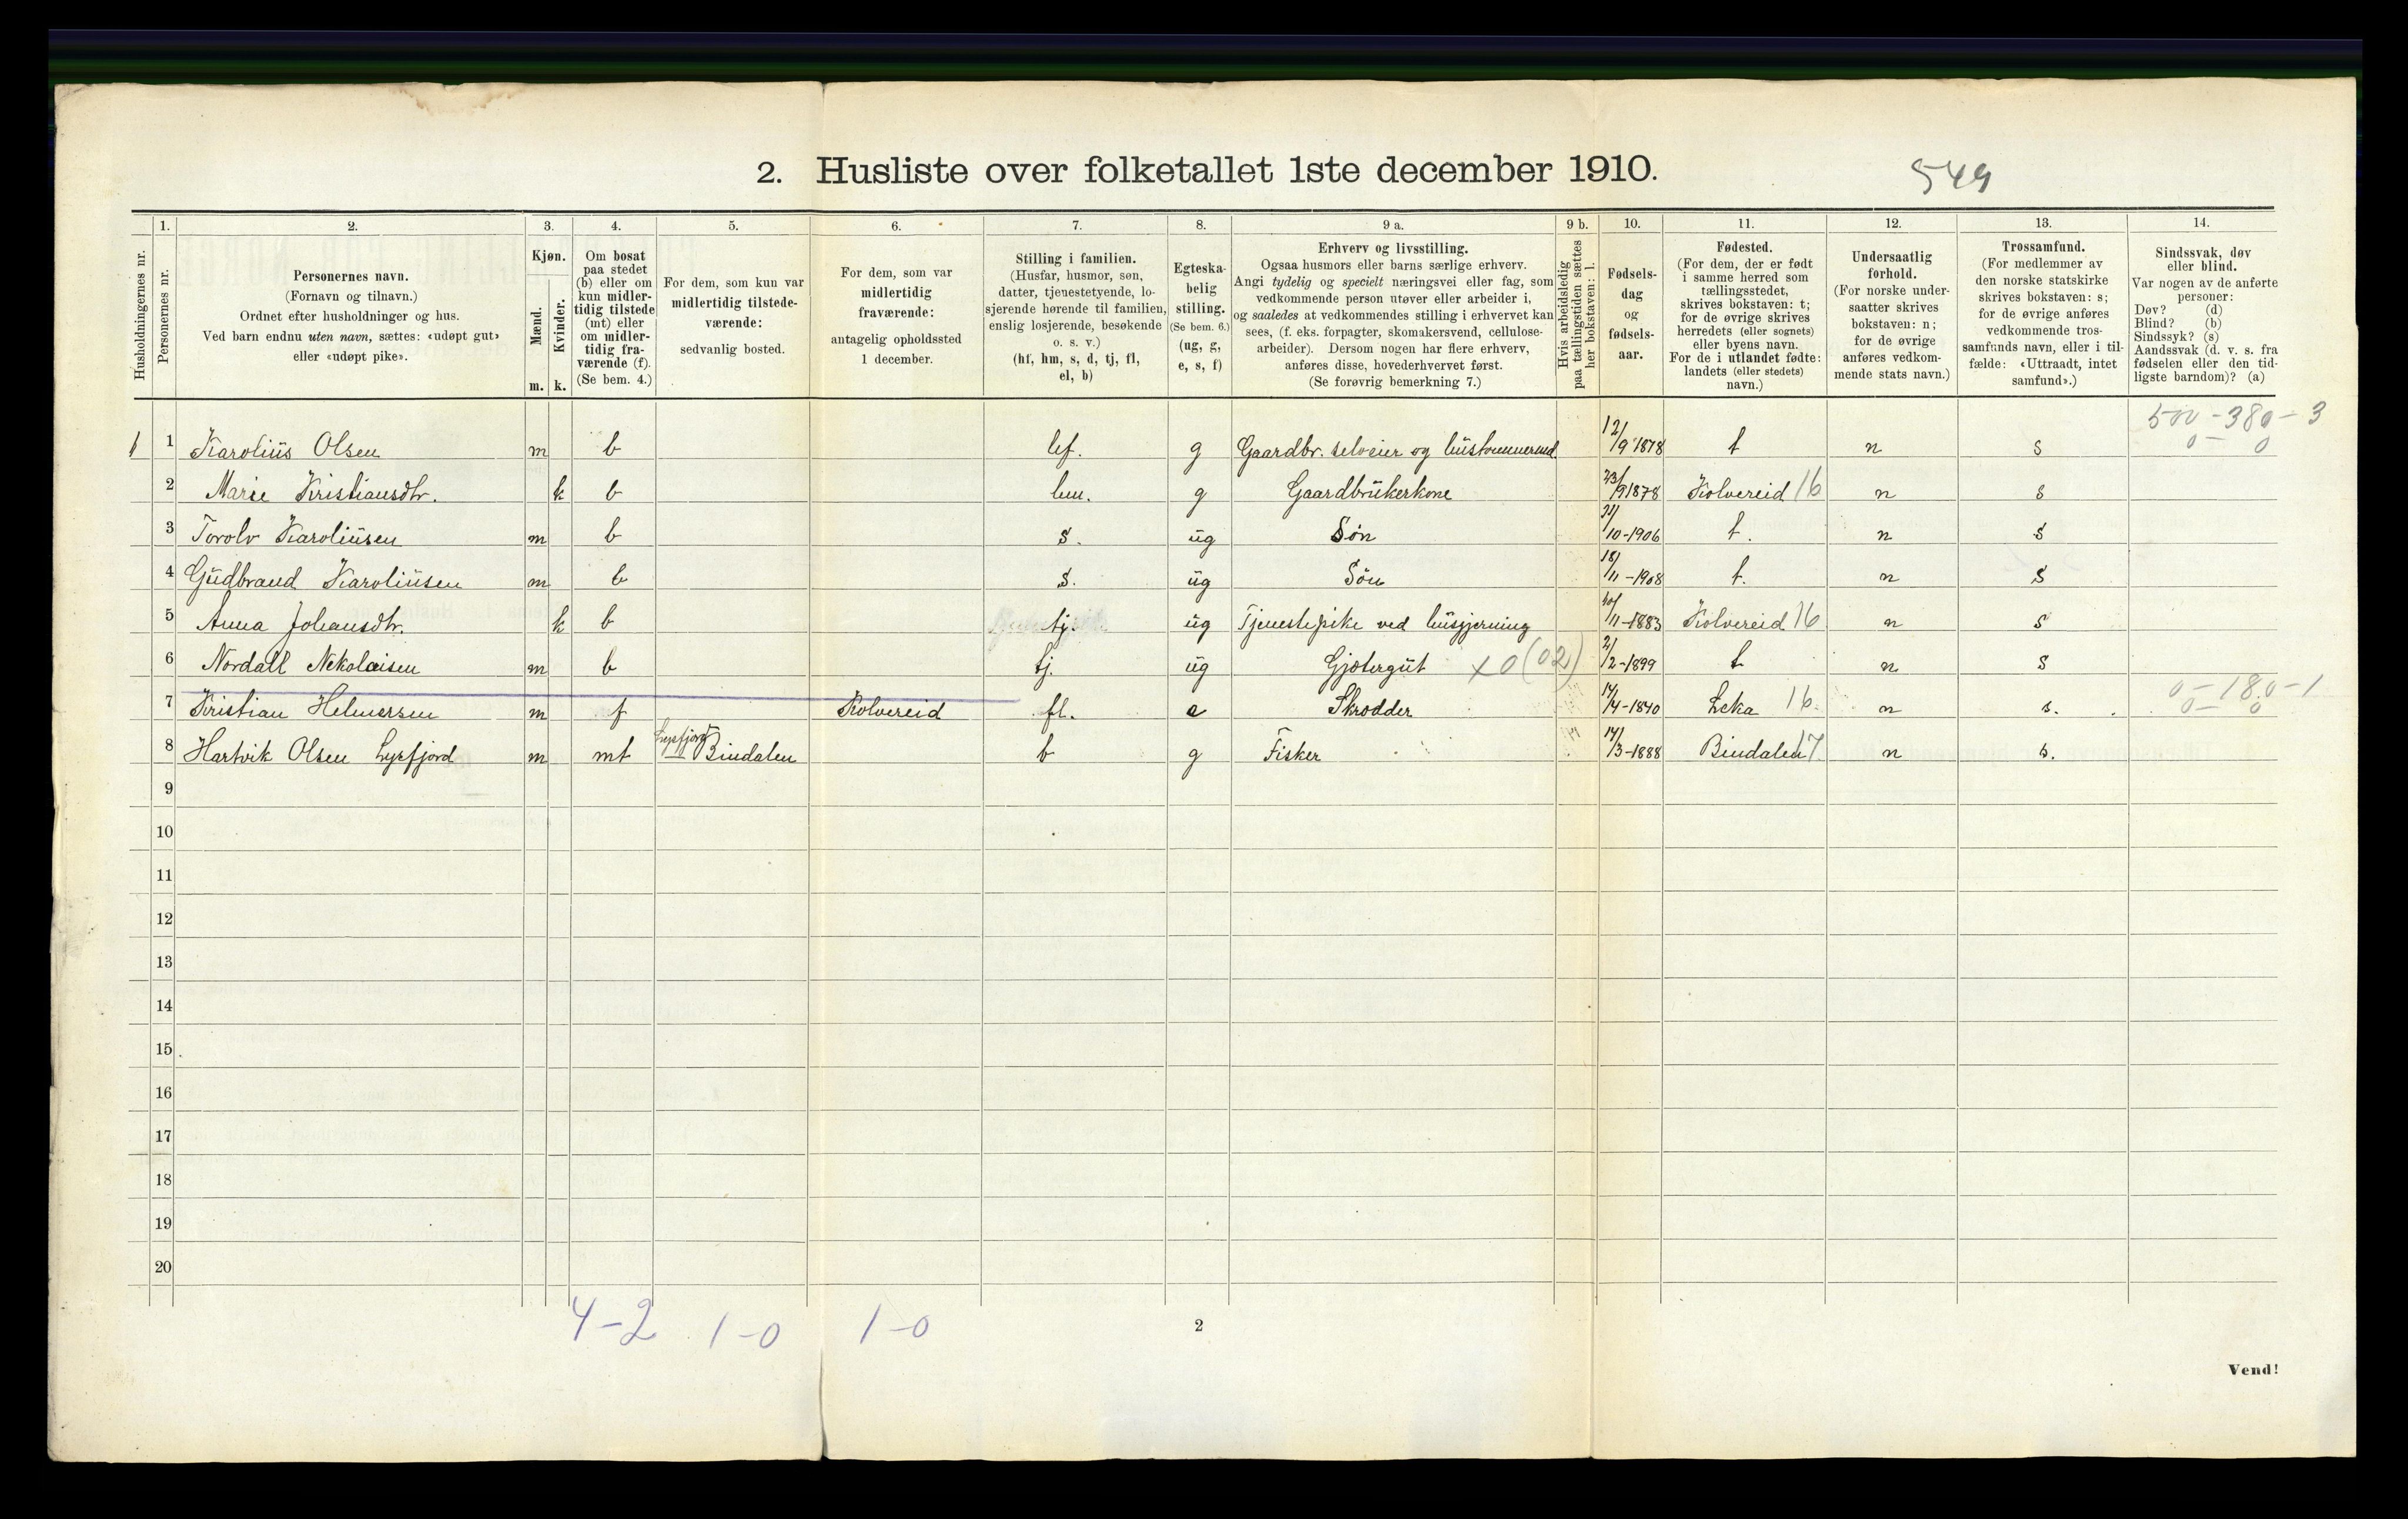 2. Husliste over folketallet 1ste december 1910.
549
1. 2. 3. 4. 5. 6. 7. 8. 9 a. 9 b. 10. 11. 12. 13. 14.
Husholdningernes nr.
Personernes nr.
Personernes navn.
(Fornavn og tilnavn.)
Ordnet efter husholdninger og hus.
Ved barn endnu uten navn, sættes: «udøpt gut»
eller «udøpt pike».
Kjøn.
Mænd.
Kvinder.
m. k.
Om bosat
paa stedet
(b) eller om
kun midler-
tidig tilstede
(mt) eller
om midler-
tidig fra-
værende (f).
(Se bem. 4.)
For dem, som kun var
midlertidig tilstede-
værende:
sedvanlig bosted.
For dem, som var
midlertidig
fraværende:
antagelig opholdssted
1 december.
Stilling i familien.
(Husfar, husmor, søn,
datter, tjenestetyende, lo-
sjerende hørende til familien,
enslig losjerende, besøkende
o. s. v.)
(hf, hm, s, d, tj, fl,
el, b)
Egteska-
belig
stilling.
(Se bem. 6.)
(ug, g,
e, s, f)
Erhverv og livsstilling.
Ogsaa husmors eller barns særlige erhverv.
Angi tydelig og specielt næringsvei eller fag, som
vedkommende person utøver eller arbeider i,
og saaledes at vedkommendes stilling i erhvervet kan
sees, (f. eks. forpagter, skomakersvend, cellulose-
arbeider). Dersom nogen har flere erhverv,
anføres disse, hovederhvervet først.
(Se forøvrig bemerkning 7.)
Hvis arbeidsledig
paa tællingstiden sættes
her bokstaven: l.
Fødsels-
dag
og
fødsels-
aar.
Fødested.
(For dem, der er født
i samme herred som
tællingsstedet,
skrives bokstaven: t;
for de øvrige skrives
herredets (eller sognets)
eller byens navn.
For de i utlandet fødte:
landets (eller stedets)
navn.)
Undersaatlig
forhold.
(For norske under-
saatter skrives
bokstaven: n;
for de øvrige
anføres vedkom-
mende stats navn.)
Trossamfund.
(For medlemmer av
den norske statskirke
skrives bokstaven: s;
for de øvrige anføres
vedkommende tros-
samfunds navn, eller i til-
fælde: «Uttraadt, intet
samfund».)
Sindssvak, døv
eller blind.
Var nogen av de anførte
personer:
Døv? (d)
Blind? (b)
Sindssyk? (s)
Aandssvak (d. v. s. fra
fødselen eller den tid-
ligste barndom)? (a)
500-380-3
0-0
1 1 Karolius Olsen m b hf. g Gaardbr. selveier og hustømmermd. 12/9 1878 t n s
2 Marie Kristiansdtr. k b hm. g Gaardbrukerkone 23/9 1878 Kolvereid 16 n s
3 Torolv Karoliusen m b s. ug Søn /10-1906 t. n s
4 Gudbrand Karoliusen m b s. ug Søn 18/11-1908 t. n s
5 Anna Johansdtr. k b tj. ug Tjenestepike ved husgjerning /11-1883 Kolvereid 16 n s
6 Nordall Nekolaisen m b tj. ug Gjætergut x0(02) 2/2-1899 t n s
7 Kristian Helmersen m f Kolvereid fl. e Skrodder 14/4-1840 Leka 16. n s. 0-180-1
0-0
8 Hartvik Olsen Lysfjord m mt Lysfjord Bindalen b g Fisker 14/3-1888 Bindalen 17. n s.
9
10
11
12
13
14
15
16
17
18
19
20
4-2 1-0 1-0
2
Vend!